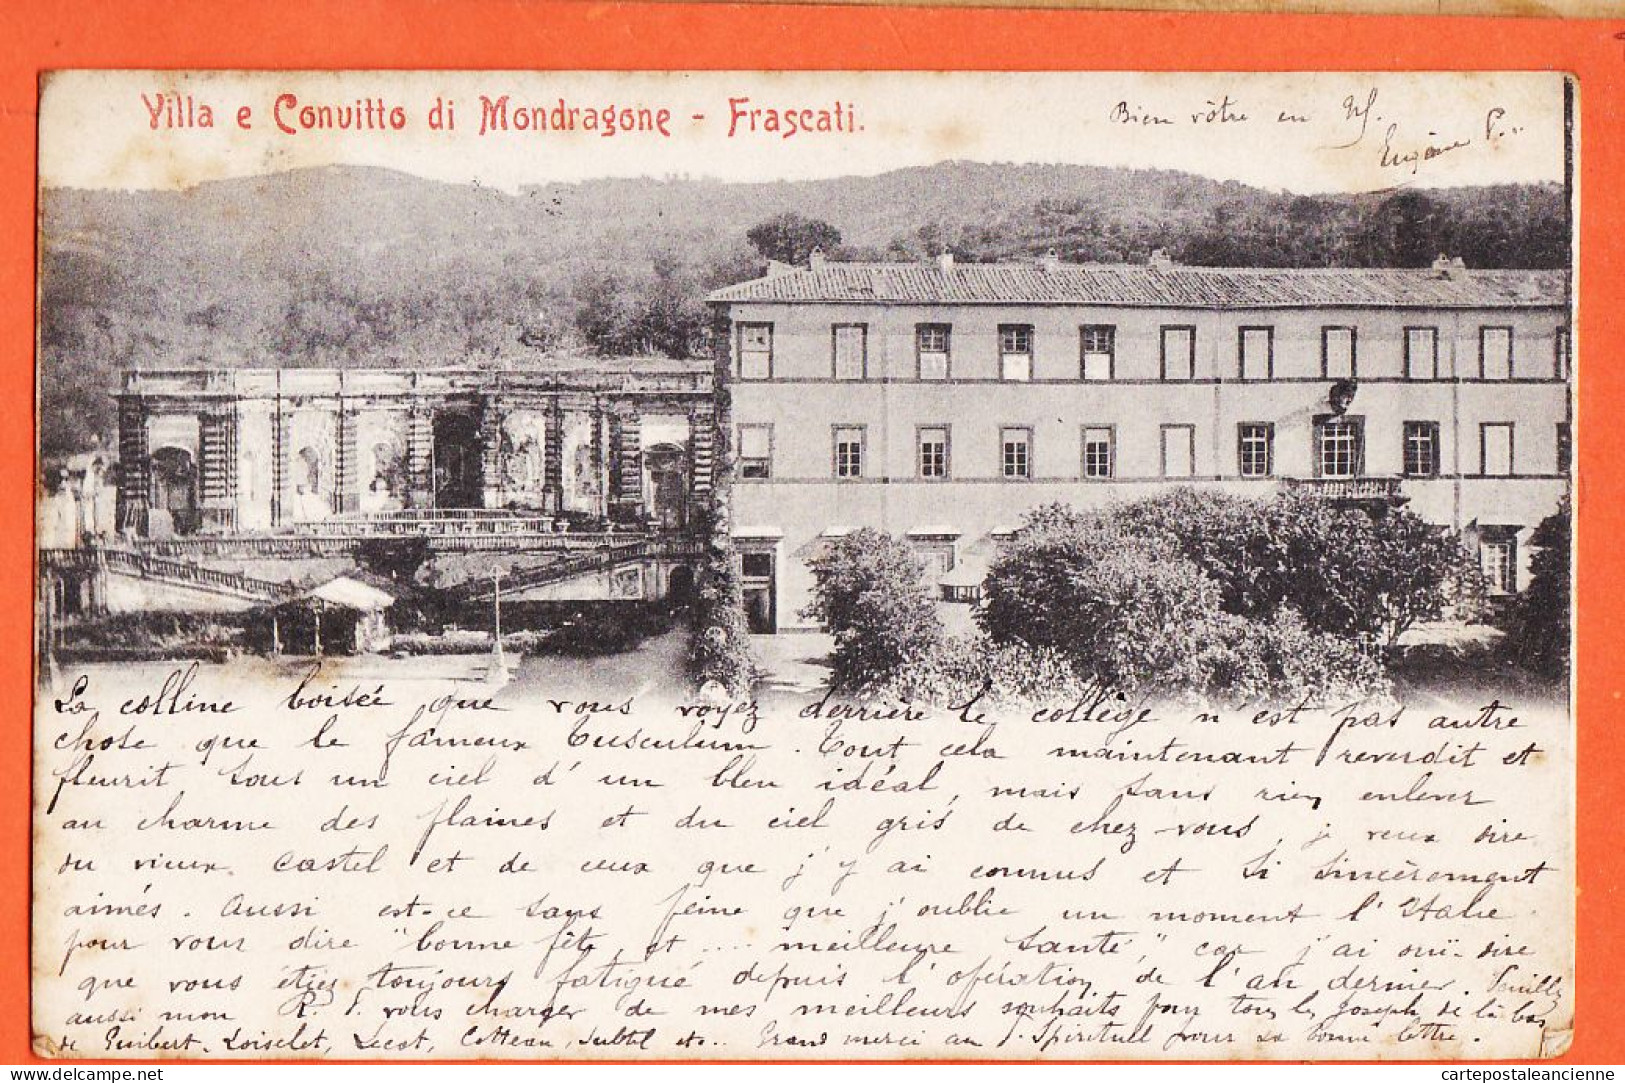 Villa e Convitto di Mondragone - Frascati.
Bien vôtre en
Eugène P...
La colline boisée que vous voyez derrière le collège n'est pas autre
chose que le fameux Tusculum. Tout cela maintenant reverdit et
fleurit sous un ciel d'un bleu idéal, mais sans rien enlever
au charme des plaines et du ciel gris de chez-vous, je veux dire
du vieux Castel et de ceux que j'y ai connus et si sincèrement
aimés. Aussi est-ce sans peine que j'oublie un moment l'Italie
pour vous dire "bonne fête, et .... meilleure santé", car j'ai ouï-dire
que vous étiez toujours fatigué depuis l'opération de l'an dernier. Veuillez
aussi mon R. P. vous charger de mes meilleurs souhaits pour tous les Joseph de là-bas
de Guibert, Loiselet, Lecot, Cotteau, etc.. Grand merci au P. Spirituel pour sa bonne lettre.
cartepostaleancienne.com